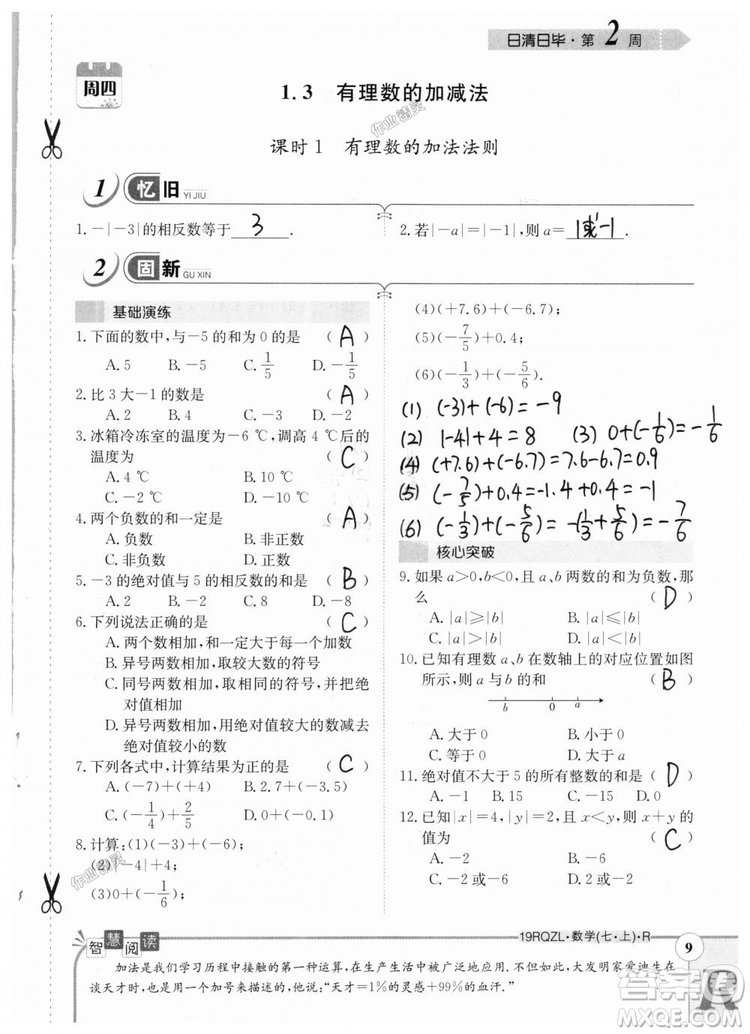 日清日毕·第2周
周四
1.3 有理数的加减法
课时1 有理数的加法法则
1 忆旧 YI JIU
1. -|-3|的相反数等于 3 .
2. 若|-a|=|-1|,则a= 1或-1 .
2 固新 GU XIN
基础演练
1. 下面的数中,与-5的和为0的是 (A)
A. 5 B. -5 C. 1/5 D. -1/5
2. 比3大-1的数是 (A)
A. 2 B. 4 C. -3 D. -2
3. 冰箱冷冻室的温度为-6 ℃,调高4 ℃后的
温度为 (C)
A. 4 ℃ B. 10 ℃
C. -2 ℃ D. -10 ℃
4. 两个负数的和一定是 (A)
A. 负数 B. 非正数
C. 非负数 D. 正数
5. -3的绝对值与5的相反数的和是 (B)
A. 2 B. -2 C. 8 D. -8
6. 下列说法正确的是 (C)
A. 两个数相加,和一定大于每一个加数
B. 异号两数相加,取较大数的符号
C. 同号两数相加,取相同的符号,并把绝
对值相加
D. 异号两数相加,用绝对值较大的数减去
绝对值较小的数
7. 下列各式中,计算结果为正的是 (C)
A. (-7)+(+4) B. 2.7+(-3.5)
C. (-1/4)+2/5 D. 0+(-0.1)
8. 计算:(1)(-3)+(-6);
(2)|-4|+4;
(3)0+(-1/6);
(4)(+7.6)+(-6.7);
(5)(-7/5)+0.4;
(6)(-1/3)+(-5/6).
(1) (-3)+(-6)=-9
(2) |-4|+4=8 (3) 0+(-1/6)=-1/6
(4) (+7.6)+(-6.7)=7.6-6.7=0.9
(5) (-7/5)+0.4=-1.4+0.4=-1
(6) (-1/3)+(-5/6)=-(1/3+5/6)=-7/6
核心突破
9. 如果a>0,b<0,且a、b两数的和为负数,那
么 (D)
A. |a|≥|b| B. |a|≤|b|
C. |a|>|b| D. |a|<|b|
10. 已知有理数a、b在数轴上的对应位置如图
所示,则a与b的和 (B)
b 0 a
A. 大于0 B. 小于0
C. 等于0 D. 大于a
11. 绝对值不大于5的所有整数的和是 (D)
A. -1 B. 15 C. -15 D. 0
12. 已知|x|=4,|y|=2,且x<y,则x+y的
值为 (C)
A. -2 B. -6
C. -2或-6 D. 2或-6
智慧阅读
19RQZL·数学(七·上)·R
9
加法是我们学习历程中接触的第一种运算,在生产生活中被广泛地应用.大发明家爱迪生在
谈天才时,用一个加号来描述的,他说:“天才=1%的灵感+99%的血汗.”
作业精灵
作业精灵
答案圈
MXQE.COM